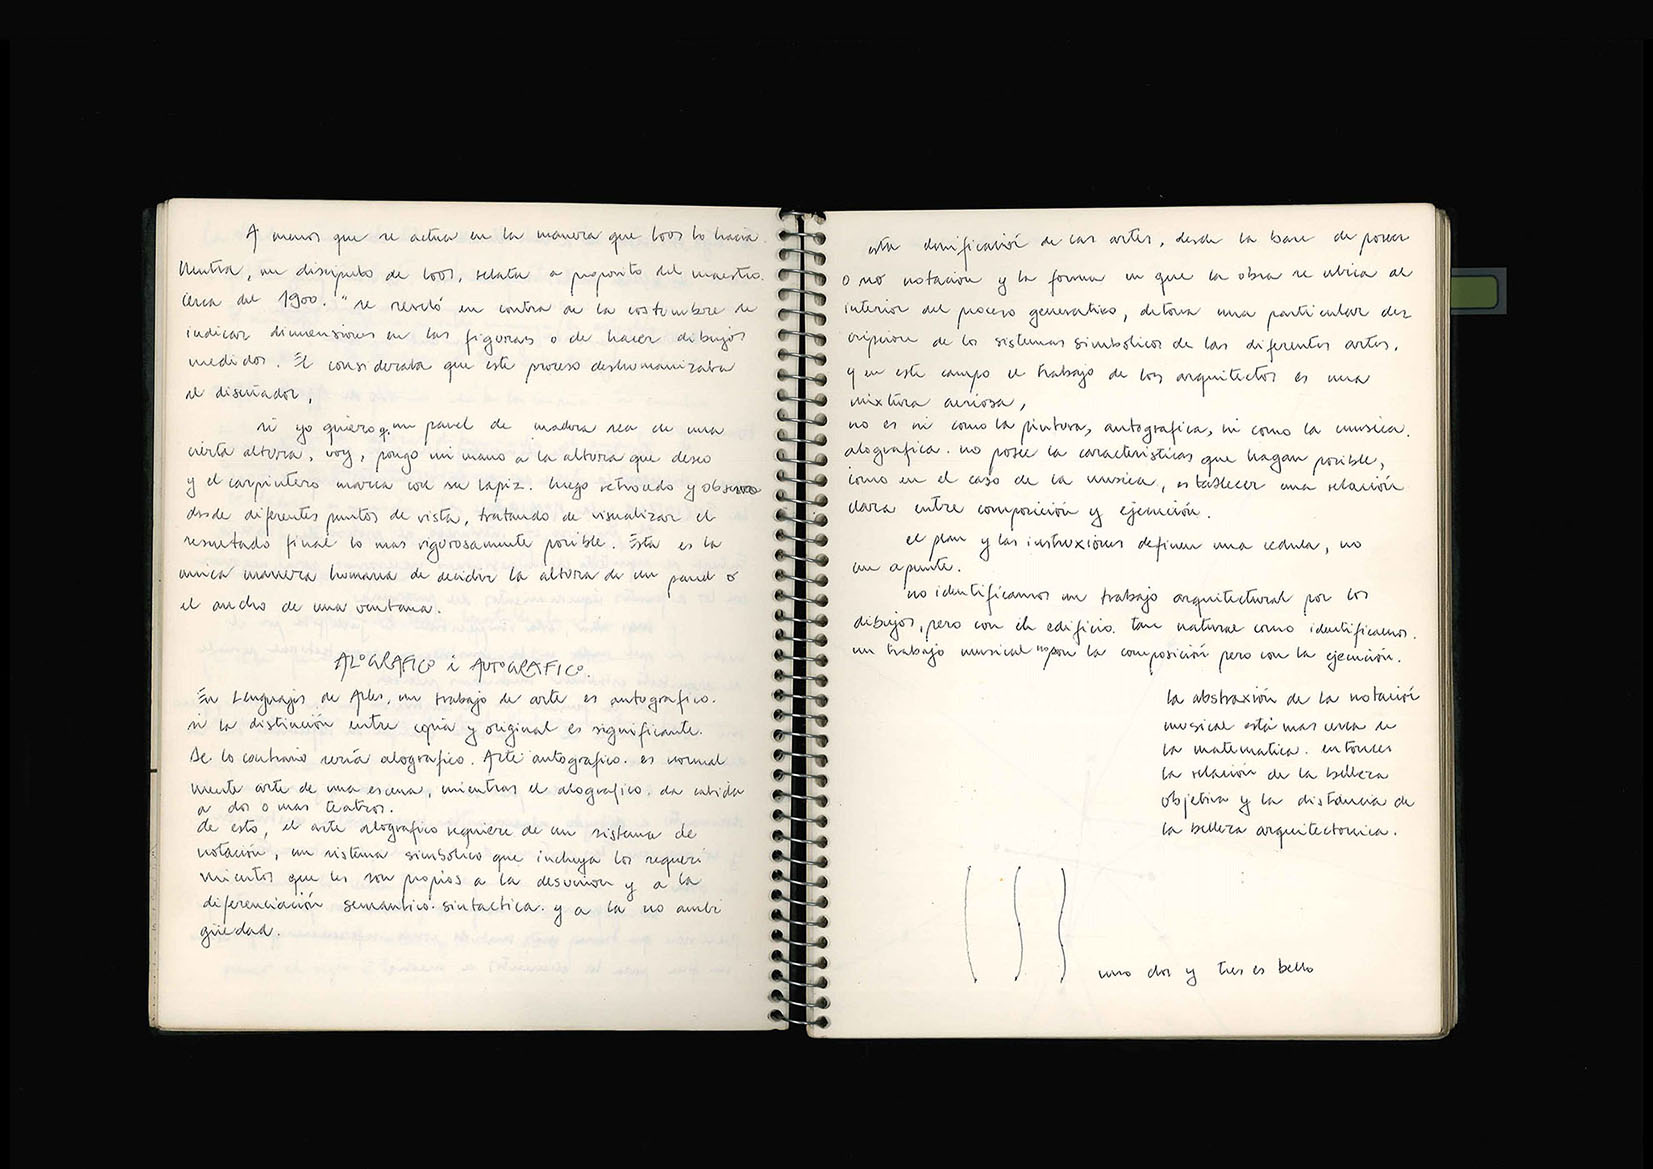 A menos que se actua en la manera que loos lo hacia.
Neutra, un discipulo de loos, relata a proposito del maestro.
cerca del 1900. "se reveló en contra de la costumbre de
indicar dimensiones en las figuras o de hacer dibujos
medidos. El consideraba que este proceso deshumanizaba
al diseñador,
si yo quiero q. un panel de madera sea de una
cierta altura, voy, pongo mi mano a la altura que deseo
y el carpintero marca con su lapiz. luego retrocedo y observo
desde diferentes puntos de vista, tratando de visualizar el
resultado final lo mas rigurosamente posible. Esta es la
unica manera humana de decidir la altura de un panel o
el ancho de una ventana.
ALOGRAFICO i AUTOGRAFICO.
En Lenguajes de Artes, un trabajo de arte es autografico.
si la distinción entre copia y original es significante.
De lo contrario seria alografico. Arte autografico. es normal
mente arte de una escena, mientras el alografico. da cabida
a dos o mas teatros.
de esto, el arte alografico requiere de un sistema de
notación, un sistema simbolico que incluya los requeri
mientos que les son propios a la desunion y a la
diferenciación semantico. sintactica. y a la no ambi
güedad.
esta clasificación de las artes, desde la base de poseer
o no notación y la forma en que la obra se ubica al
interior del proceso generativo, detona una particular des
cripcion de los sistemas simbolicos de las diferentes artes.
y en este campo el trabajo de los arquitectos es una
mixtura curiosa,
no es ni como la pintura, autografica, ni como la musica.
alografica. no posee la caracteristicas que hagan posible,
como en el caso de la musica, establecer una relación
clara entre composición y ejecución.
el plan y las instruxiones definen una cedula, no
un apunte.
no identificamos un trabajo arquitectural por los
dibujos, pero con el edificio. tan natural como identificamos.
un trabajo musical no con la composición pero con la ejecución.
la abstraxión de la notación
musical está mas cerca de
la matematica. entonces
la relación de la belleza
objetiva y la distancia de
la belleza arquitectonica.
uno dos y tres es bello